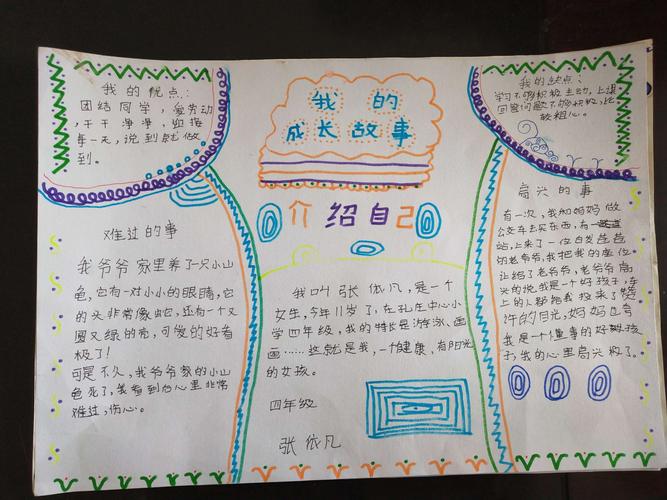 我的优点:
团结同学，爱劳动
，干干净净，迎接
每一天，说到就做
到。
我的
成长故事
我的缺点:
学习不够积极主动，上课
回答问题不够积极，比
较粗心。
介绍自己
难过的事
我爷爷家里养了一只小山
龟，它有一对小小的眼睛，它
的头非常像蛇，还有一个又
圆又绿的壳，可爱的好看
极了！
可是不久，我爷爷家的小山
龟死了，我看到后心里非常
难过，伤心。
我叫张依凡，是一个
女生，今年11岁了，在孔庄中心小
学四年级，我的特长是游泳、画
画……这就是我，一个健康，有阳光
的女孩。
四年级
张依凡
高兴的事
有一次，我和妈妈做
公交车去买东西，有一
站，上来了一位白发苍苍
的老爷爷，我把我的座位
让给了老爷爷，老爷爷高
兴的说，我是一个好孩子，车
上的人都给我投来了赞
许的目光，妈妈也夸
我是一个懂事的好孩子
我的心里高兴极了。